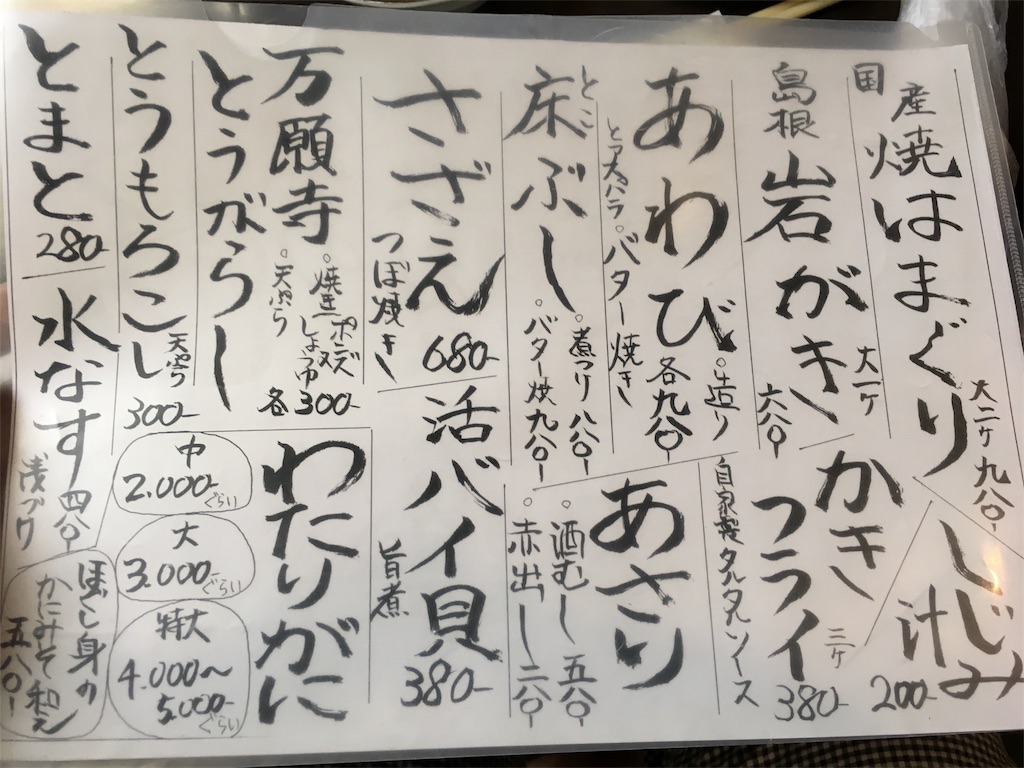 国産焼はまぐり
大二ケ 九八〇-
しじみ汁
200-
島根岩がき
大一ケ
六八〇-
かきフライ
三ケ
380-
自家製タルタルソース
あわび
。造り
各九八〇-
。バター焼き
あさり
。酒むし 五八〇
。赤出し 二八〇
とこ
床ぶし
。煮つけ 八八〇-
。バター焼 九八〇-
さざえ
つぼ焼き
680-
活バイ貝
旨煮
380-
万願寺
とうがらし
。焼き
。天ぷら
各300-
わたりがに
中
2.000-ぐらい
大
3.000-ぐらい
特大
4.000〜
5.000-ぐらい
ほじし身の
かにみそ和え
五八〇-
とうもろこし
天ぷら
300-
とまと
280-
水なす
四八〇-
浅づけ